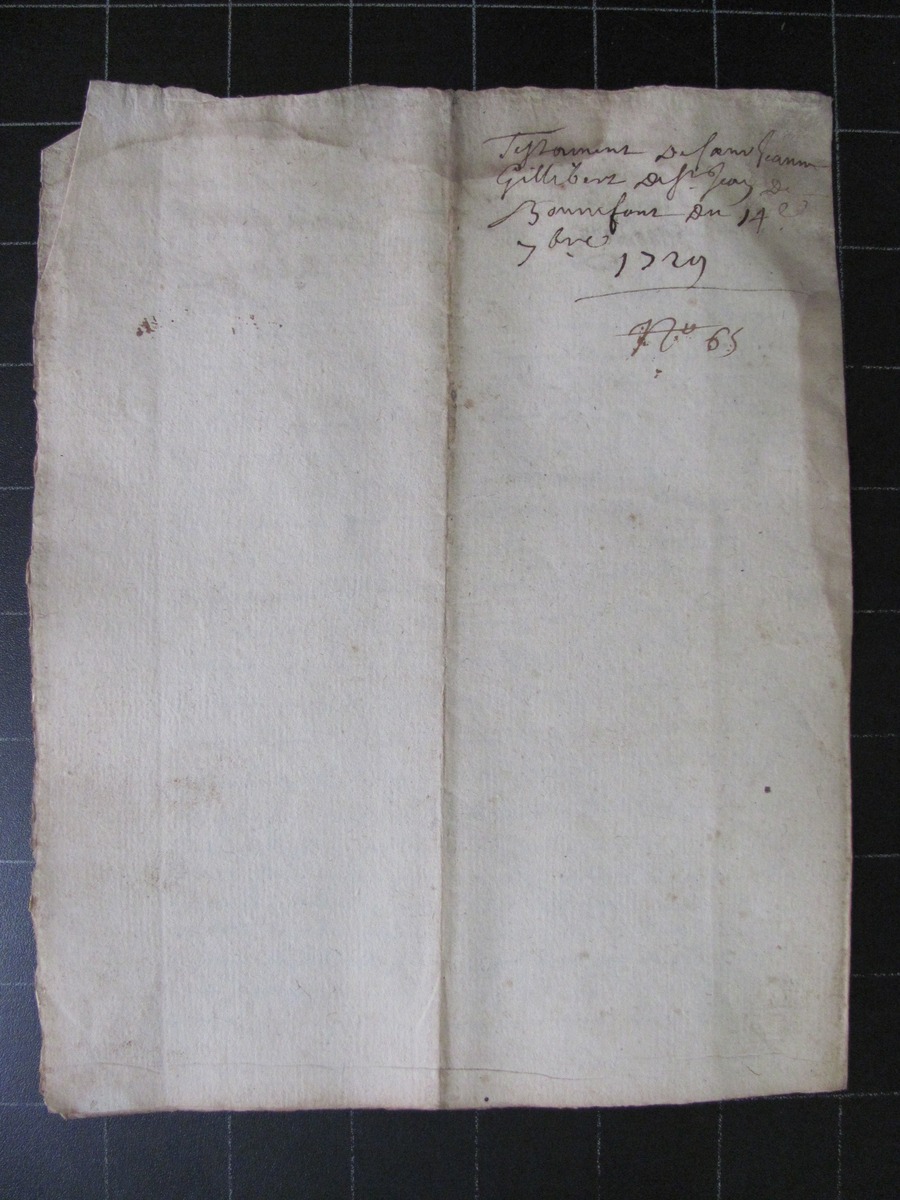 Testament de Jeanne
Gillibert de St Jean de
Bonnefont du 14e
7bre
1729
No 65